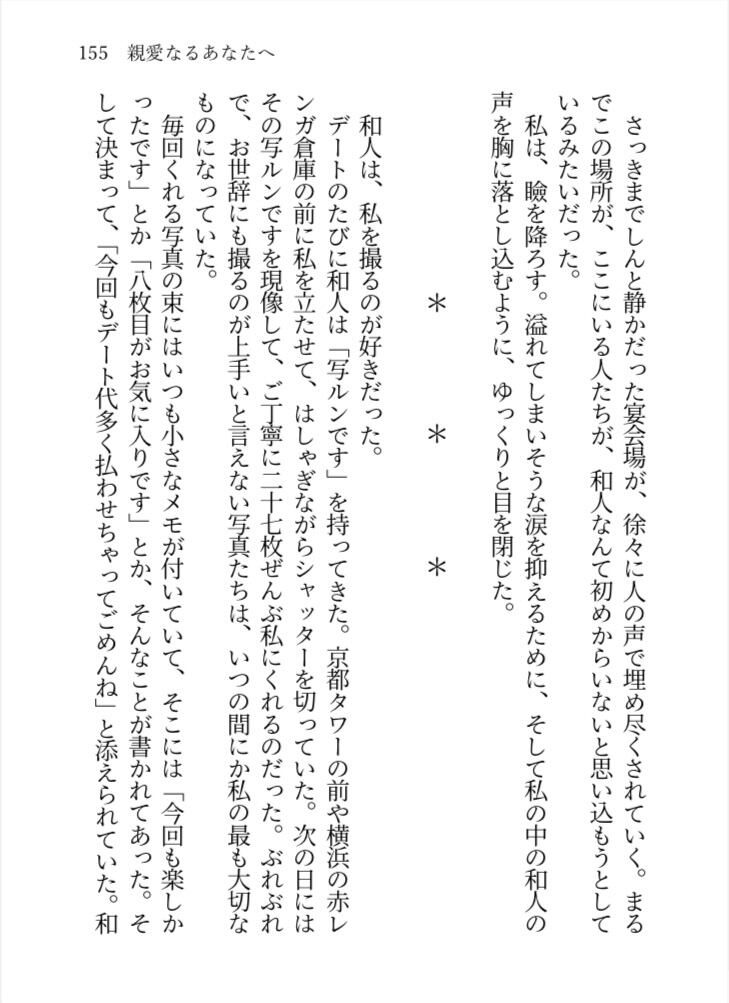 155 親愛なるあなたへ
　さっきまでしんと静かだった宴会場が、徐々に人の声で埋め尽くされていく。まる
でこの場所が、ここにいる人たちが、和人なんて初めからいないと思い込もうとして
いるみたいだった。
　私は、瞼を降ろす。溢れてしまいそうな涙を抑えるために、そして私の中の和人の
声を胸に落とし込むように、ゆっくりと目を閉じた。
＊　＊　＊
　和人は、私を撮るのが好きだった。
　デートのたびに和人は「写ルンです」を持ってきた。京都タワーの前や横浜の赤レ
ンガ倉庫の前に私を立たせて、はしゃぎながらシャッターを切っていた。次の日には
その写ルンですを現像して、ご丁寧に二十七枚ぜんぶ私にくれるのだった。ぶれぶれ
で、お世辞にも撮るのが上手いと言えない写真たちは、いつの間にか私の最も大切な
ものになっていた。
　毎回くれる写真の束にはいつも小さなメモが付いていて、そこには「今回も楽しか
ったです」とか「八枚目がお気に入りです」とか、そんなことが書かれてあった。そ
して決まって、「今回もデート代多く払わせちゃってごめんね」と添えられていた。和